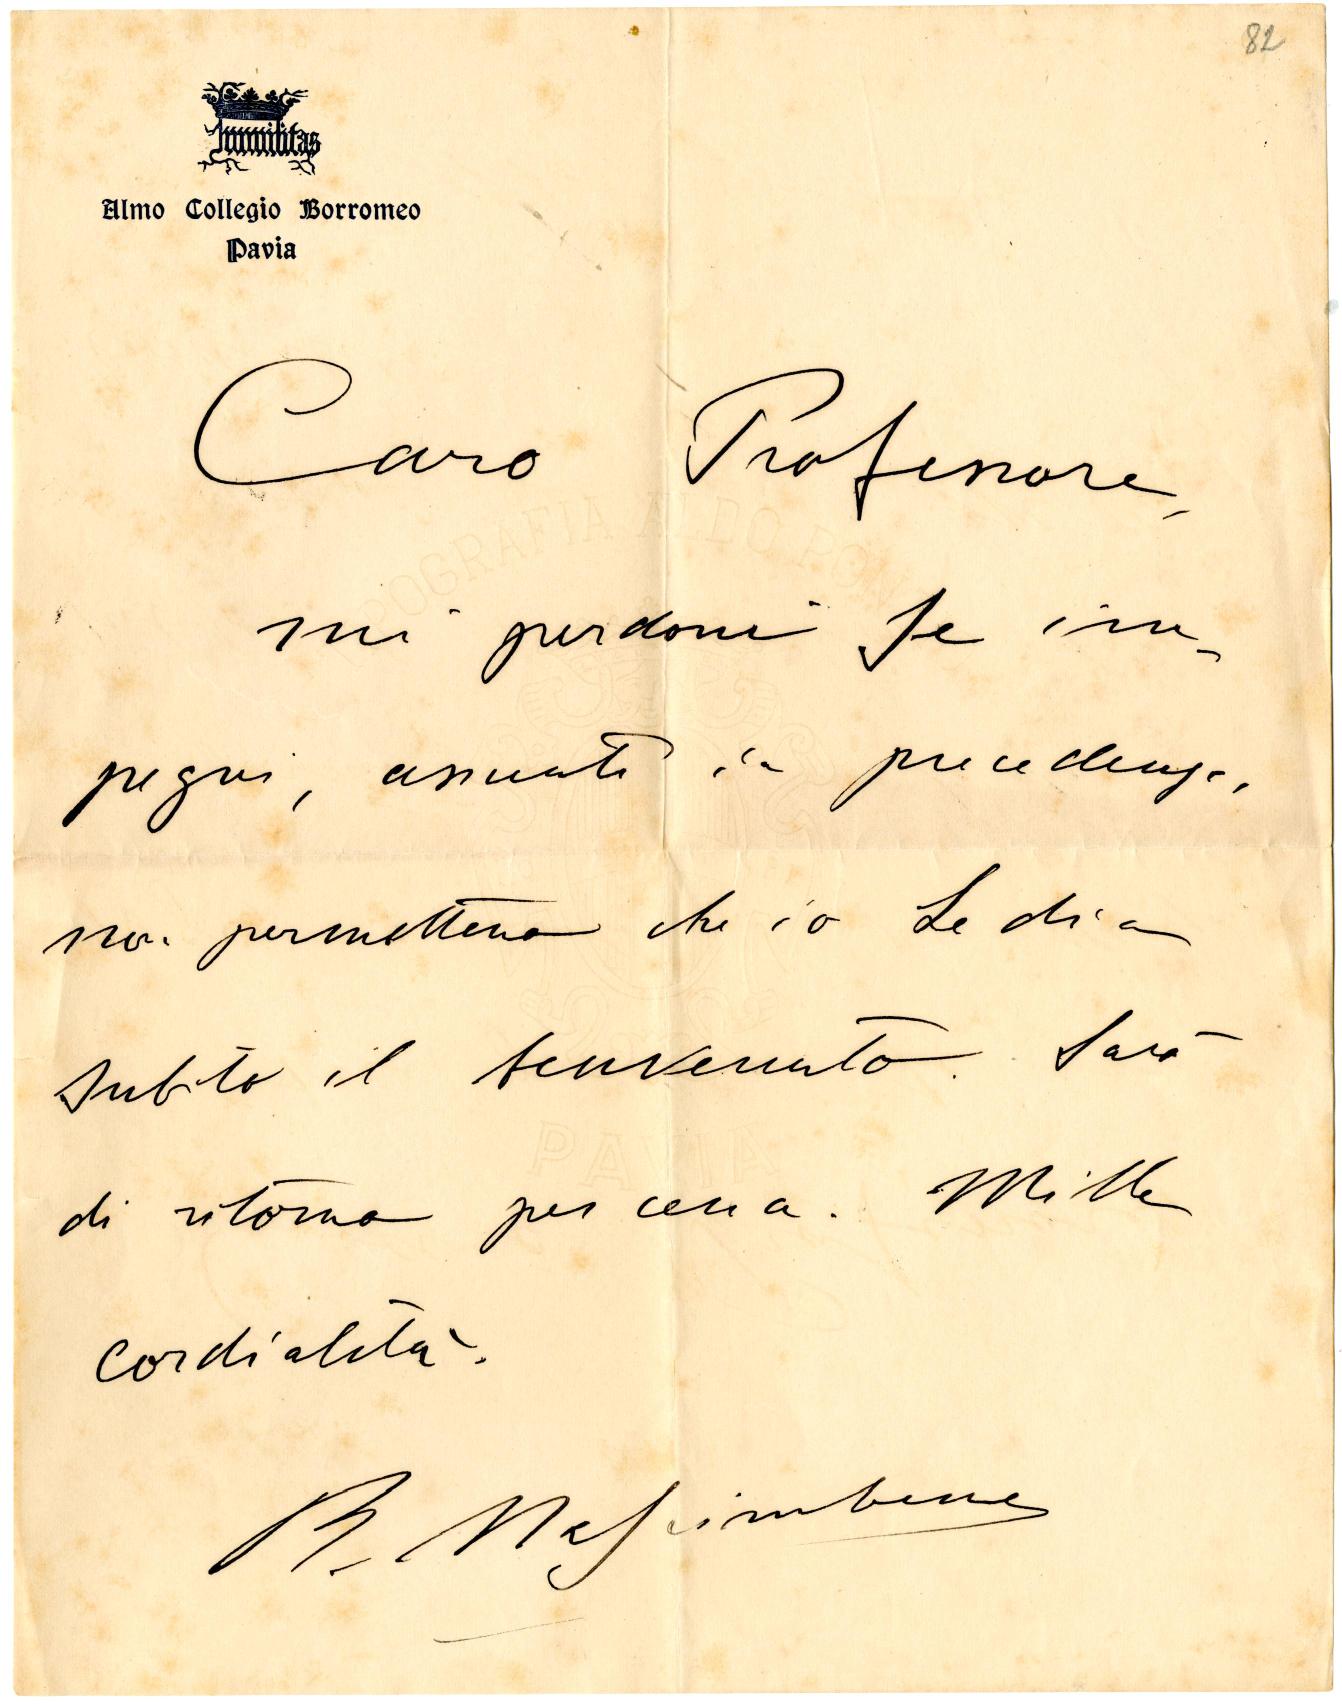 82
Humilitas
Almo Collegio Borromeo
Pavia
Caro Professore,
mi perdoni se im-
pegni, assunti in precedenza,
non permettono che io Le dia
subito il benvenuto. Sarò
di ritorno per cena. Mille
cordialità.
R. Nascimbene
TIPOGRAFIA ALDO PON
PAVIA